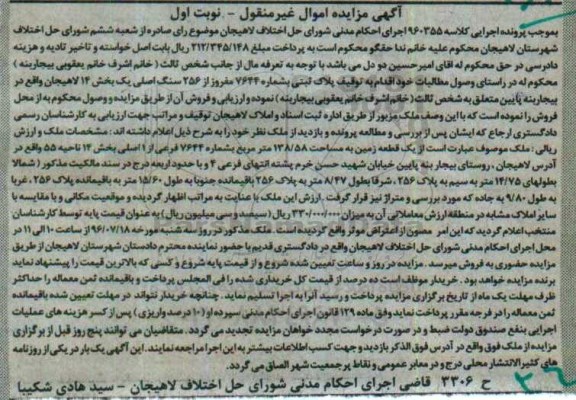 آگهی مزایده اموال غیرمنقول - نوبت اول
بموجب پرونده اجرایی کلاسه ۹۶۰۳۵۵ اجرای احکام مدنی شورای حل اختلاف لاهیجان موضوع رای صادره از شعبه ششم شورای حل اختلاف
شهرستان لاهیجان محکوم علیه خانم ندا حقگو محکوم است به پرداخت مبلغ ۲۱۲/۳۴۵/۱۴۸ ریال بابت اصل خواسته و تاخیر تادیه و هزینه
دادرسی در حق محکوم له آقای امیرحسین دو دل می باشد با توجه به تعرفه مال از جانب شخص ثالث (خانم اشرف خانم یعقوبی بیجارپنه)
محکوم له در راستای وصول مطالبات خود اقدام به توقیف پلاک ثبتی بشماره ۷۶۴۴ مفروز از ۲۵۶ سنگ اصلی یک بخش ۱۴ لاهیجان واقع در
بیجارپنه پایین متعلق به شخص ثالث (خانم اشرف خانم یعقوبی بیجارپنه) نموده و ارزیابی و فروش آن از طریق مزایده و وصول محکوم به از محل
فروش را نموده است که با این وصف ملک مزبور از طریق اداره ثبت اسناد و املاک لاهیجان توقیف و مراتب جهت ارزیابی به کارشناسان رسمی
دادگستری ارجاع که ایشان پس از بررسی و مطالعه پرونده و بازدید از ملک نظر خود را به شرح ذیل اعلام داشته اند: مشخصات ملک و ارزش
ریالی: ملک موصوف عبارت است از یک قطعه زمین به مساحت ۱۳۸/۵۸ متر مربع بشماره ۷۶۴۴ فرعی از ۱ اصلی بخش ۱۴ ناحیه ۵۵ واقع در
آدرس لاهیجان، روستای بیجار بنه پایین خیابان شهید حسن خرم پشته انتهای فرعی ۴ و با حدود اربعه درج در سند مالکیت مذکور (شمالا
بطولهای ۱۴/۷۵ متر به سیم به پلاک ۲۵۶، شرقا بطول ۸/۴۷ متر به پلاک ۲۵۶ باقیمانده جنوبا به طول ۱۵/۶۰ متر به باقیمانده پلاک ۲۵۶، غربا
به طول ۹/۸۰ به جاده که مورد بررسی و متراژ نیز قرار گرفت. ارزش این ملک با عنایت به مراتب اظهار گردیده و موقعیت مکانی و با مقایسه با
سایر املاک مشابه در منطقه ارزش معاملاتی آن به میزان ۳۳۰/۰۰۰/۰۰۰ ریال (سیصد و سی میلیون ریال) به عنوان قیمت پایه توسط کارشناسان
منتخب اعلام گردید که این امر مصون از اعتراض موثر واقع گردیده است. ملک مذکور در روز سه شنبه مورخه ۹۶/۰۷/۱۸ از ساعت ۱۰ الی ۱۱ در
محل اجرای احکام مدنی شورای حل اختلاف لاهیجان واقع در دادگستری قدیم با حضور نماینده محترم دادستان شهرستان لاهیجان از طریق
مزایده حضوری به فروش میرسد. مزایده در روز و ساعت تعیین شده شروع و از قیمت پایه شروع و کسی که بالاترین قیمت را پیشنهاد نماید
برنده مزایده خواهد بود. خریدار موظف است ده درصد از قیمت کل خریداری شده را فی المجلس پرداخت و باقیمانده ثمن معامله را حداکثر
ظرف مهلت یک ماه از تاریخ برگزاری مزایده پرداخت و رسید آنرا به اجرا تسلیم نماید. چنانچه خریدار نتواند در مهلت تعیین شده باقیمانده
ثمن معامله را در فرجه مقرر پرداخت نماید وفق ماده ۱۲۹ قانون اجرای احکام مدنی سپرده او (۱۰ درصد واریزی) پس از کسر هزینه های عملیات
اجرایی بنفع صندوق دولت ضبط و در صورت درخواست مجدد خواهان مزایده تجدید می گردد. متقاضیان می توانند پنج روز قبل از برگزاری
مزایده از ملک فوق واقع در آدرس فوق الذکر بازدید و جهت کسب اطلاعات بیشتر به این اجرا مراجعه نمایند. این آگهی یک بار در یکی از روزنامه
های کثیرالانتشار محلی درج و در معابر عمومی و نقاط پر جمعیت شهر الصاق می گردد.
ح ۳۳۰۶ قاضی اجرای احکام مدنی شورای حل اختلاف لاهیجان - سید هادی شکیبا